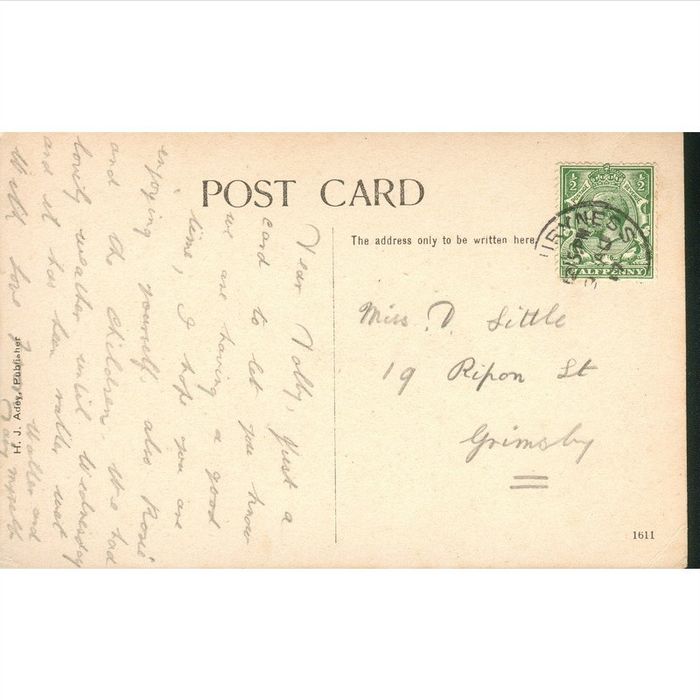 POST CARD
The address only to be written here
½ ½
HALFPENNY
Miss. D. Little
19 Ripon St
Grimsby
1611
H. J. Adey, Publisher
Dear Dolly, Just a
card to let you know
we are having a good
time, I hope you are
enjoying yourself, also Rosie
and the children. We had
lovely weather until Wednesday
and it has been rather wet
With love from Mother and
myself